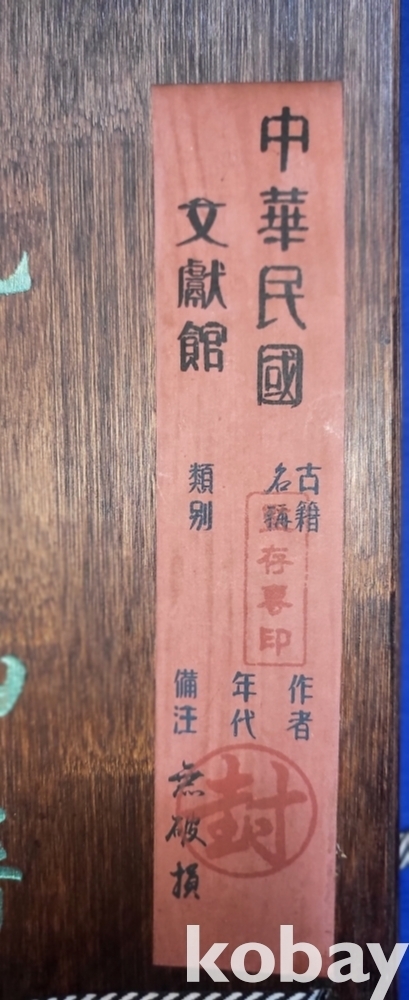 中華民國
文獻館
古籍
名稱
類别
存票印
作者
年代
備注
無破損
封
kobay